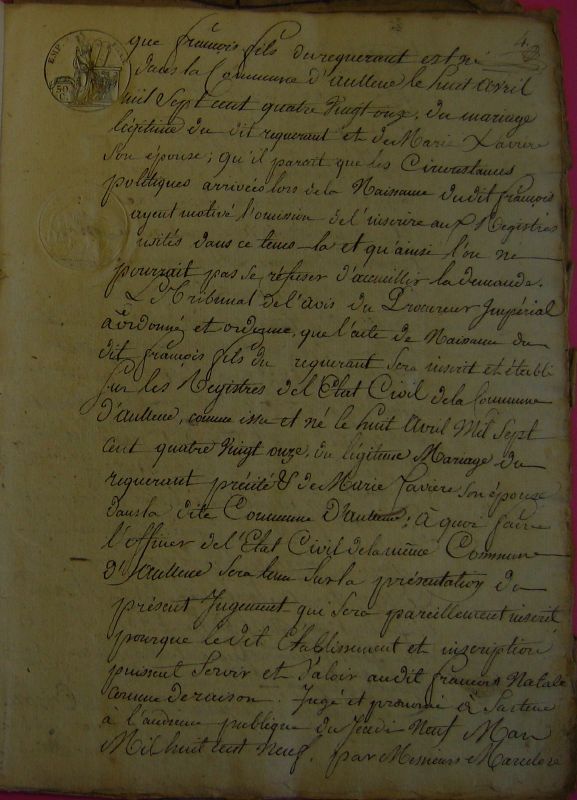 4
EMP
50
C
que françois fils du requerant est né
dans la Commune d'aullene le huit avril
mil Sept cent quatre Vingt onze, du mariage
légitime du dit requerant et de Marie Xaviere
Son épouse; qu'il parait que les Circonstances
politiques arrivées lors de la Naissance du dit françois
ayent motivé l'omission de l'inscrire aux Registres
usités dans ce tems-la et qu'ainsi l'on ne
pourrait pas Se refuser d'accueillir la demande.
Le Tribunal de l'avis du Procureur Impérial
a ordonné et ordonne, que l'acte de Naissance du
dit françois fils du requerant Sera inscrit et établi
Sur les Registres de l'Etat Civil de la Commune
D'aullene, comme issu et né le huit Avril Mil Sept
cent quatre Vingt onze, du légitime Mariage du
requerant précité & de Marie Xaviere Son épouse
dans la dite Commune D'aullene; à quoi faire
l'officier de l'Etat Civil de la même Commune
D'aullene Sera tenu Sur la présentation du
présent Jugement qui Sera pareillement inscrit
pourque le dit Etablissement et inscription
puissent Servir et Valoir au dit françois Natale
comme de raison. Jugé et prononcé à Sartene
à l'audience publique du Jeudi Neuf Mars
Mil huit cent neuf, par Messieurs